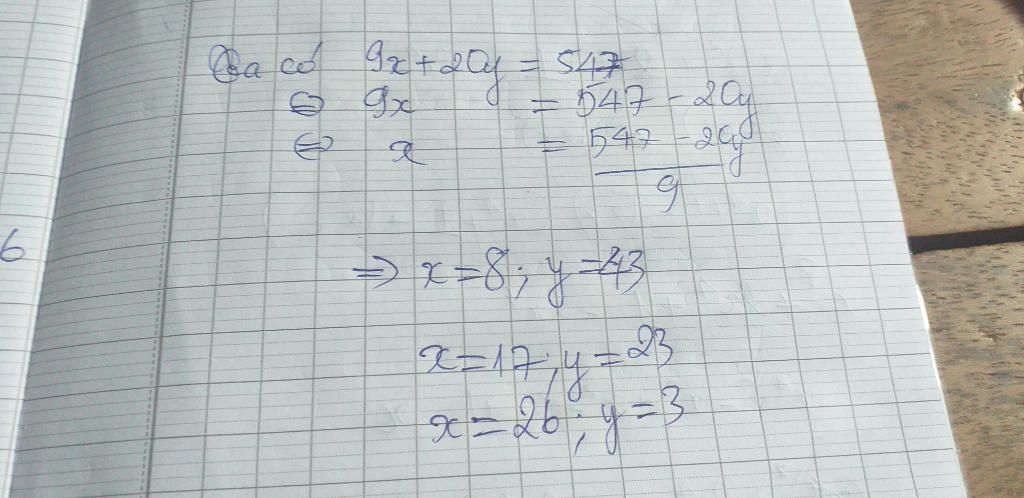 Ta có 9x + 20y = 547
⇔ 9x = 547 - 20y
⇔ x = \frac{547 - 20y}{9}
6
⇒ x = 8; y = 43
x = 17, y = 23
x = 26; y = 3